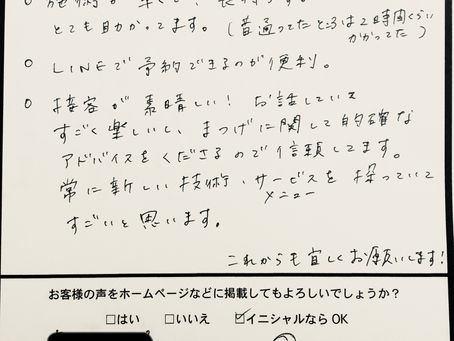 とても助かってます。(普通ってたところは2時間くらい
かかってた)
○ LINEで予約できるのが便利。
○ 接客が素晴しい! お話していて
すごく楽しいし、まつげに関して的確な
アドバイスをくださるので信頼してます。
常に新しい技術・サービスを採っていて
メニュー
すごいと思います。
これからも宜しくお願いします!
お客様の声をホームページなどに掲載してもよろしいでしょうか?
□はい □いいえ ☑イニシャルなら OK